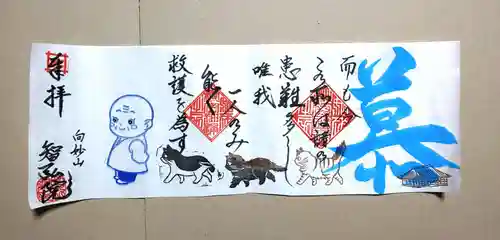 慕
而も今
この処は諸の
患難多し
唯我
一人のみ
能く
救護を為す
奉拝
向妙山
智弘院